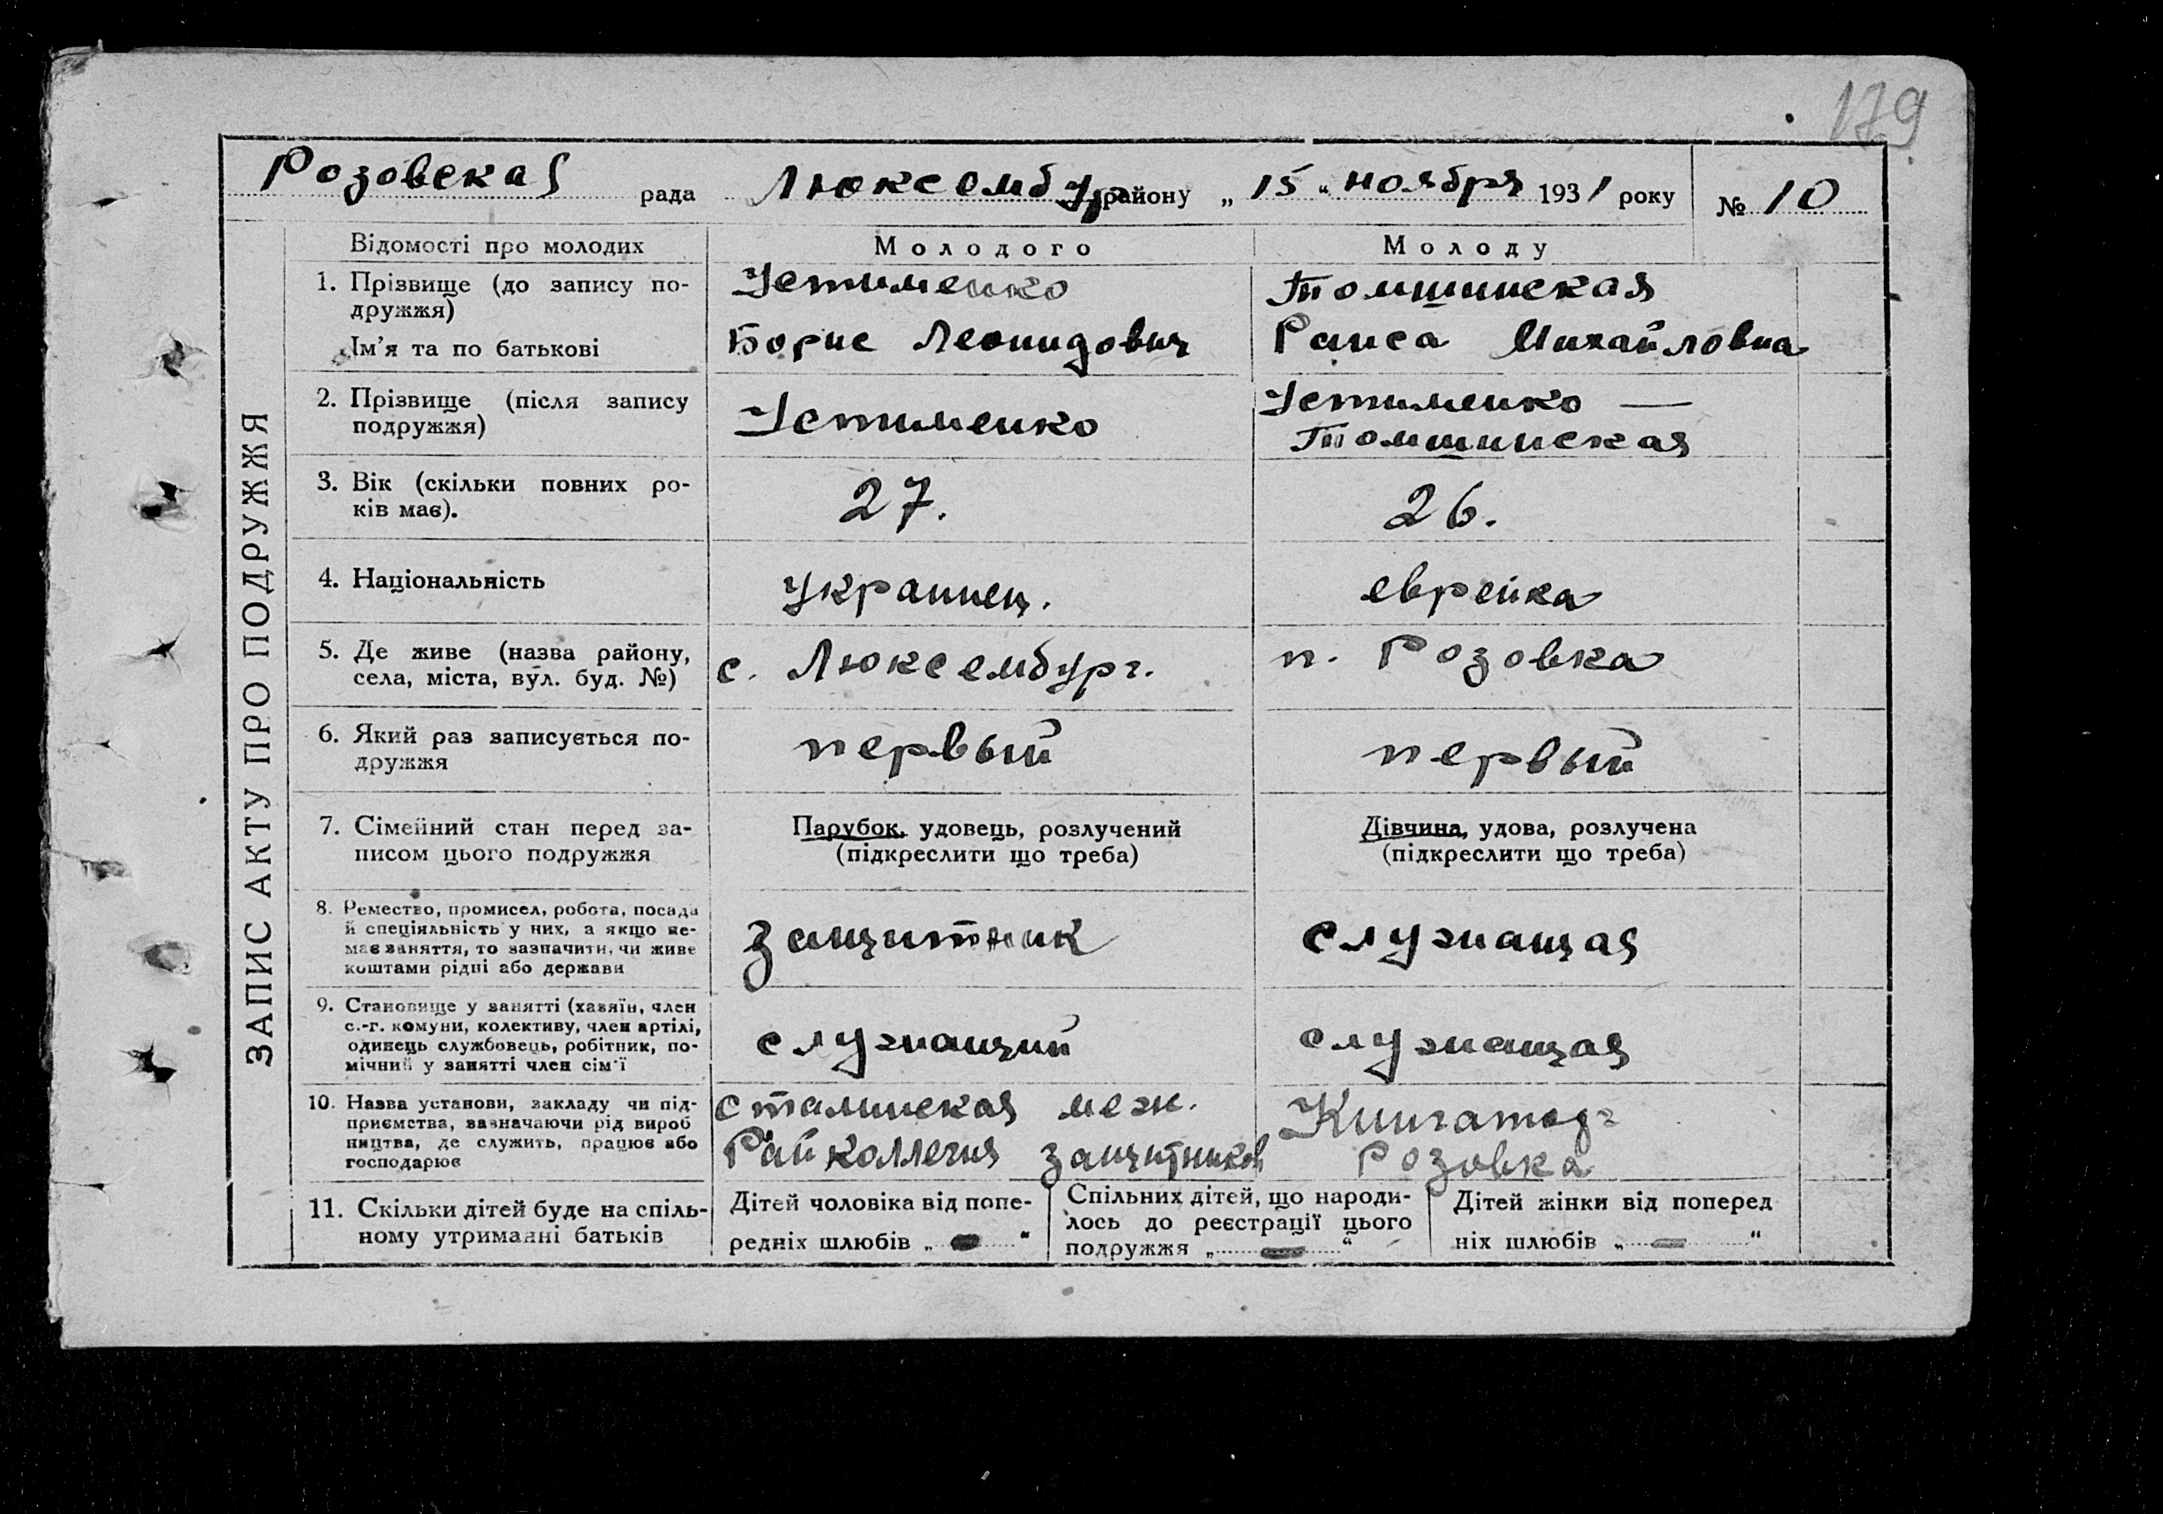 179
Розовская рада Люксембург району „15“ ноября 1931 року № 10
ЗАПИС АКТУ ПРО ПОДРУЖЖЯ
Відомості про молодих Молодого Молоду
1. Прізвище (до запису по- Устименко Томшинская
дружжя)
Ім’я та по батькові Борис Леонидович Раиса Михайловна
2. Прізвище (після запису Устименко Устименко —
подружжя) Томшинская
3. Вік (скільки повних ро- 27. 26.
ків має).
4. Національність украинец. еврейка
5. Де живе (назва району, с. Люксембург. п. Розовка
села, міста, вул. буд. №)
6. Який раз записується по- первый первый
дружжя
7. Сімейний стан перед за- Парубок, удовець, розлучений Дівчина, удова, розлучена
писом цього подружжя (підкреслити що треба) (підкреслити що треба)
8. Ремество, промисел, робота, посада защитник служащая
й спеціяльність у них, а якщо не-
має заняття, то зазначити, чи живе
коштами рідні або держави
9. Становище у занятті (хазяїн, член служащий служащая
с.-г. комуни, колективу, член артілі,
одинець службовець, робітник, по-
мічний у занятті член сім’ї
10. Назва установи, закладу чи під- Сталинская меж.
приємства, зазначаючи рід вироб Райколлегия защитников Розовка
ництва, де служить, працює або
господарює
11. Скільки дітей буде на спіль- Дітей чоловіка від попе- Спільних дітей, що народи- Дітей жінки від поперед
ному утриманні батьків редніх шлюбів „ — “ лось до реєстрації цього ніх шлюбів „ — “
подружжя „ — “